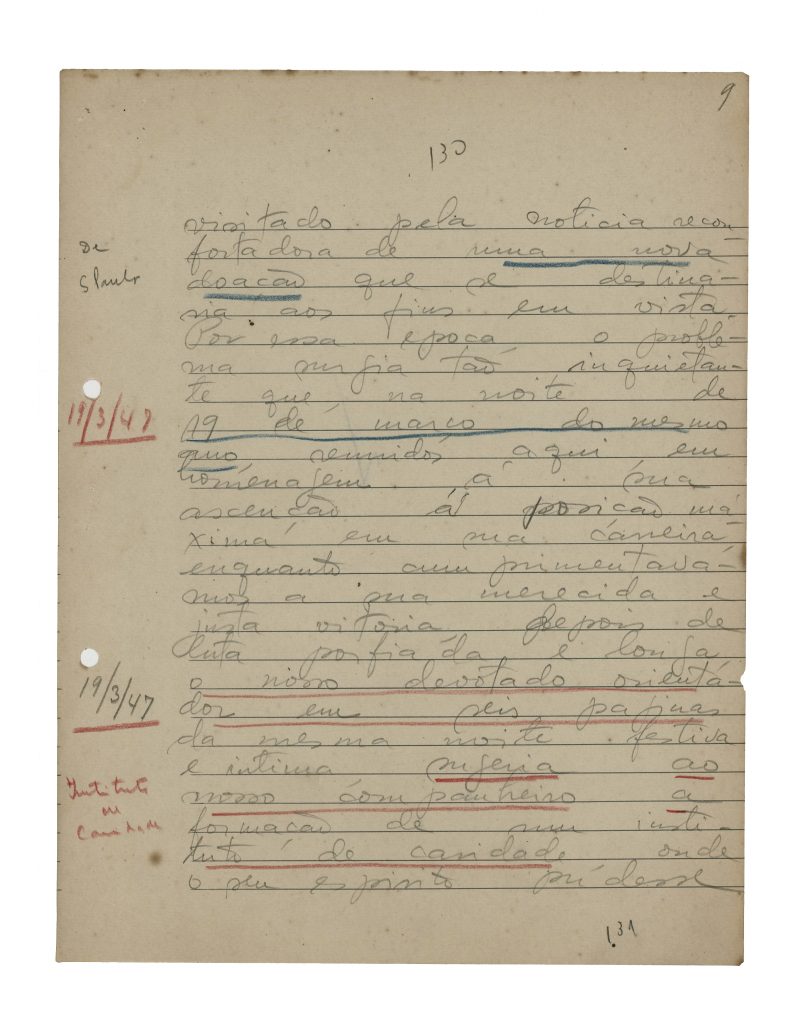 9
130
visitado pela noticia recon-
fortadora de uma nova
doacão que se destina-
ria aos fins em vista.
Por essa epoca o proble-
ma surgia tão inquietan-
te que na noite de
19 de março do mesmo
ano reunidos aqui em
homenagem á sua
ascenção á posição má-
xima em sua carreira
enquanto cumprimentava-
mos a sua merecida e
justa vitoria depois de
luta porfiada e longa
o nosso devotado orienta-
dor em seis paginas
da mesma noite festiva
e intima sugeria ao
nosso companheiro a
formacão de um insti-
tuto de caridade onde
o seu espirito pudesse
131
De
S Paulo
19/3/47
19/3/47
Instituto
de
Caridade